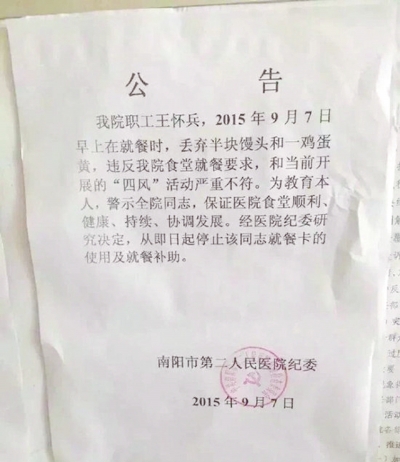 公 告
我院职工王怀兵，2015 年 9 月 7 日
早上在就餐时，丢弃半块馒头和一鸡蛋
黄，违反我院食堂就餐要求，和当前开
展的“四风”活动严重不符。为教育本
人，警示全院同志，保证医院食堂顺利、
健康、持续、协调发展。经医院纪委研
究决定，从即日起停止该同志就餐卡的
使用及就餐补助。
南阳市第二人民医院纪委
2015 年 9 月 7 日